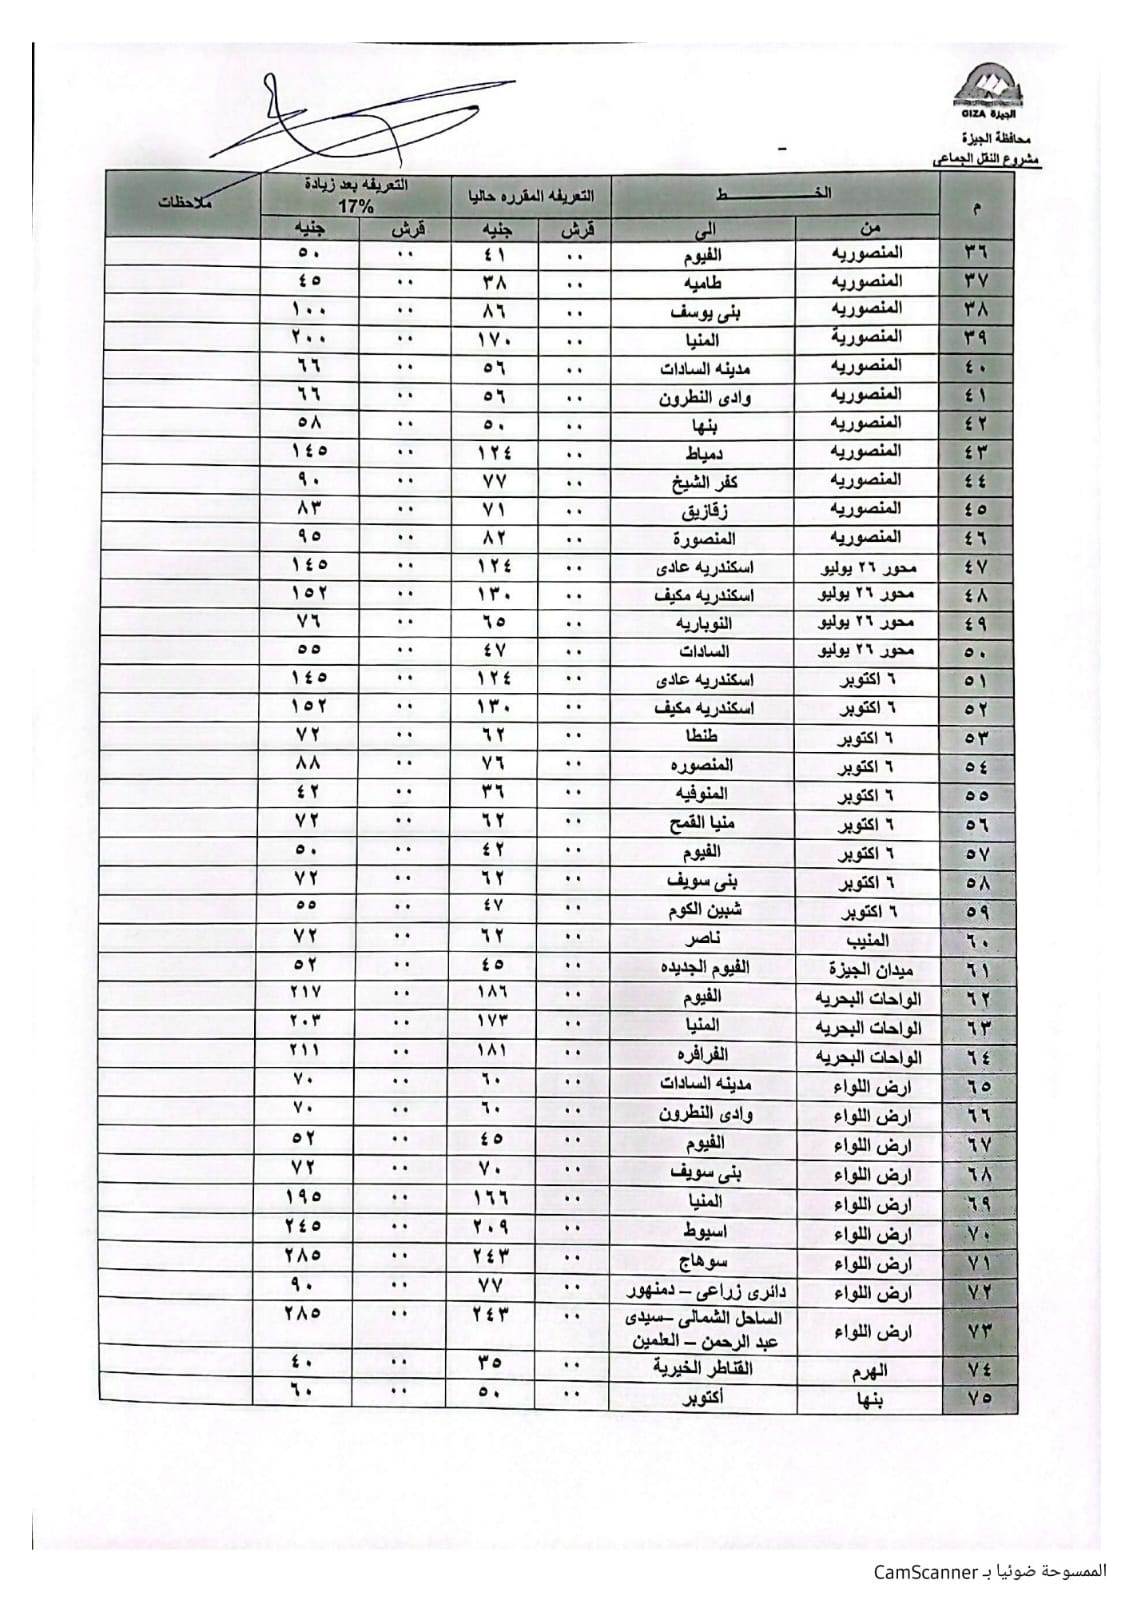 الجيزة GIZA
محافظة الجيزة
مشروع النقل الجماعى
م الخــــــــط التعريفه المقرره حاليا التعريفه بعد زيادة 17% ملاحظات
من الى قرش جنيه قرش جنيه
٣٦ المنصوريه الفيوم ٠٠ ٤١ ٠٠ ٥٠
٣٧ المنصوريه طاميه ٠٠ ٣٨ ٠٠ ٤٥
٣٨ المنصوريه بنى يوسف ٠٠ ٨٦ ٠٠ ١٠٠
٣٩ المنصورية المنيا ٠٠ ١٧٠ ٠٠ ٢٠٠
٤٠ المنصوريه مدينه السادات ٠٠ ٥٦ ٠٠ ٦٦
٤١ المنصوريه وادى النطرون ٠٠ ٥٦ ٠٠ ٦٦
٤٢ المنصوريه بنها ٠٠ ٥٠ ٠٠ ٥٨
٤٣ المنصوريه دمياط ٠٠ ١٢٤ ٠٠ ١٤٥
٤٤ المنصوريه كفر الشيخ ٠٠ ٧٧ ٠٠ ٩٠
٤٥ المنصوريه زقازيق ٠٠ ٧١ ٠٠ ٨٣
٤٦ المنصوريه المنصورة ٠٠ ٨٢ ٠٠ ٩٥
٤٧ محور ٢٦ يوليو اسكندريه عادى ٠٠ ١٢٤ ٠٠ ١٤٥
٤٨ محور ٢٦ يوليو اسكندريه مكيف ٠٠ ١٣٠ ٠٠ ١٥٢
٤٩ محور ٢٦ يوليو النوباريه ٠٠ ٦٥ ٠٠ ٧٦
٥٠ محور ٢٦ يوليو السادات ٠٠ ٤٧ ٠٠ ٥٥
٥١ ٦ اكتوبر اسكندريه عادى ٠٠ ١٢٤ ٠٠ ١٤٥
٥٢ ٦ اكتوبر اسكندريه مكيف ٠٠ ١٣٠ ٠٠ ١٥٢
٥٣ ٦ اكتوبر طنطا ٠٠ ٦٢ ٠٠ ٧٢
٥٤ ٦ اكتوبر المنصوره ٠٠ ٧٦ ٠٠ ٨٨
٥٥ ٦ اكتوبر المنوفيه ٠٠ ٣٦ ٠٠ ٤٢
٥٦ ٦ اكتوبر منيا القمح ٠٠ ٦٢ ٠٠ ٧٢
٥٧ ٦ اكتوبر الفيوم ٠٠ ٤٢ ٠٠ ٥٠
٥٨ ٦ اكتوبر بنى سويف ٠٠ ٦٢ ٠٠ ٧٢
٥٩ ٦ اكتوبر شبين الكوم ٠٠ ٤٧ ٠٠ ٥٥
٦٠ المنيب ناصر ٠٠ ٦٢ ٠٠ ٧٢
٦١ ميدان الجيزة الفيوم الجديده ٠٠ ٤٥ ٠٠ ٥٢
٦٢ الواحات البحريه الفيوم ٠٠ ١٨٦ ٠٠ ٢١٧
٦٣ الواحات البحريه المنيا ٠٠ ١٧٣ ٠٠ ٢٠٣
٦٤ الواحات البحريه الفرافره ٠٠ ١٨١ ٠٠ ٢١١
٦٥ ارض اللواء مدينه السادات ٠٠ ٦٠ ٠٠ ٧٠
٦٦ ارض اللواء وادى النطرون ٠٠ ٦٠ ٠٠ ٧٠
٦٧ ارض اللواء الفيوم ٠٠ ٤٥ ٠٠ ٥٢
٦٨ ارض اللواء بنى سويف ٠٠ ٧٠ ٠٠ ٧٢
٦٩ ارض اللواء المنيا ٠٠ ١٦٦ ٠٠ ١٩٥
٧٠ ارض اللواء اسيوط ٠٠ ٢٠٩ ٠٠ ٢٤٥
٧١ ارض اللواء سوهاج ٠٠ ٢٤٣ ٠٠ ٢٨٥
٧٢ ارض اللواء دائرى زراعى – دمنهور ٠٠ ٧٧ ٠٠ ٩٠
٧٣ ارض اللواء الساحل الشمالى –سيدى ٠٠ ٢٤٣ ٠٠ ٢٨٥
عبد الرحمن – العلمين
٧٤ الهرم القناطر الخيرية ٠٠ ٣٥ ٠٠ ٤٠
٧٥ بنها أكتوبر ٠٠ ٥٠ ٠٠ ٦٠
الممسوحة ضوئيا بـ CamScanner